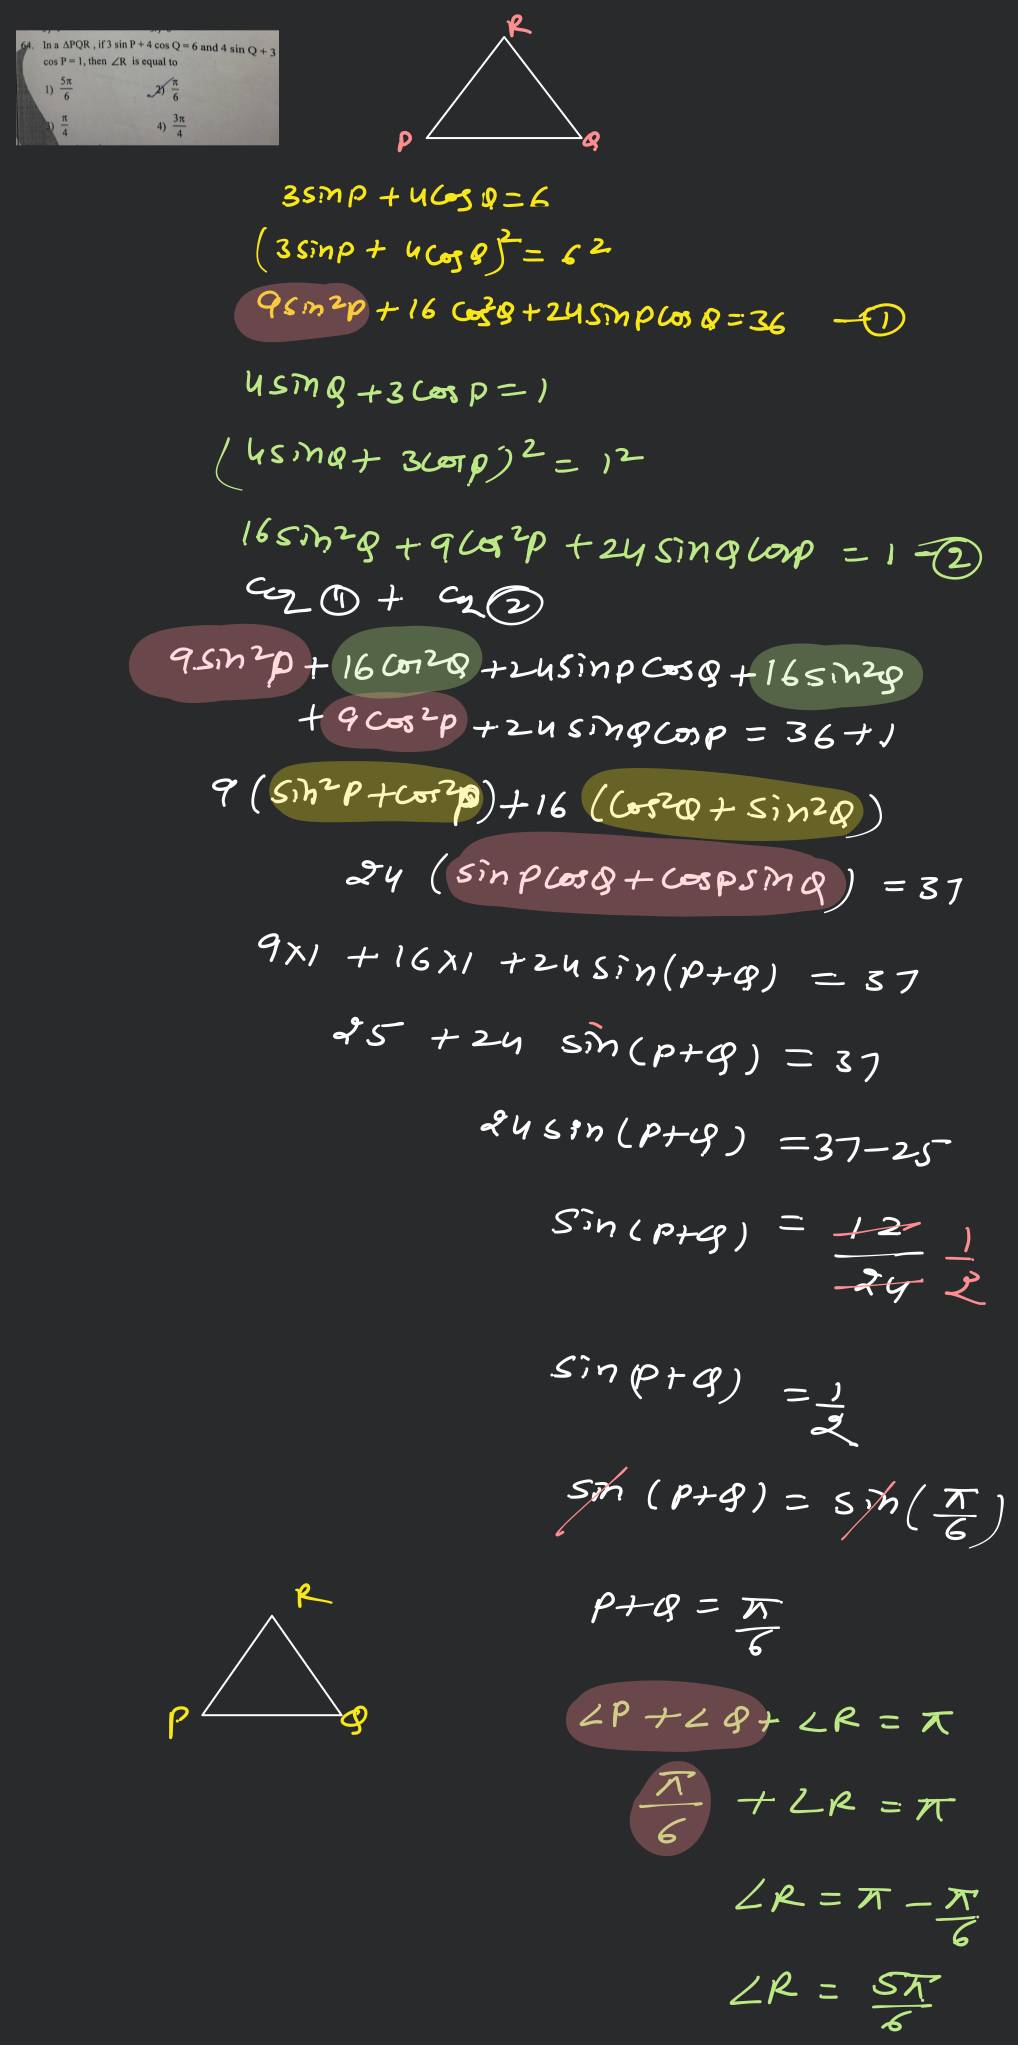 64. In a ΔPQR, if 3 sin P + 4 cos Q = 6 and 4 sin Q + 3
cos P = 1, then ∠R is equal to
1) 5π/6 2) π/6
3) π/4 4) 3π/4
R
P Q
3sinP + 4cosQ = 6
(3sinP + 4cosQ)² = 6²
9sin²P + 16cos²Q + 24sinPcosQ = 36 —①
4sinQ + 3cosP = 1
(4sinQ + 3cosP)² = 1²
16sin²Q + 9cos²P + 24sinQcosP = 1 —②
eq① + eq②
9sin²P + 16cos²Q + 24sinPcosQ + 16sin²Q
+ 9cos²P + 24sinQcosP = 36+1
9(sin²P + cos²P) + 16(cos²Q + sin²Q)
24(sinPcosQ + cosPsinQ) = 37
9×1 + 16×1 + 24sin(P+Q) = 37
25 + 24 sin(P+Q) = 37
24sin(P+Q) = 37-25
sin(P+Q) = 12/24 1/2
sin(P+Q) = 1/2
sin(P+Q) = sin(π/6)
P+Q = π/6
R
P Q
∠P + ∠Q + ∠R = π
π/6 + ∠R = π
∠R = π - π/6
∠R = 5π/6